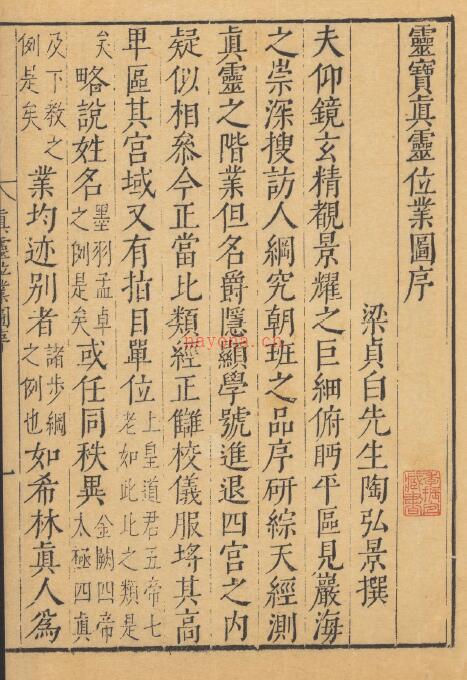 靈寶真靈位業圖序
梁貞白先生陶弘景撰
夫仰鏡玄精覩景耀之巨細俯眄平區見巖海
之崇深搜訪人綱究朝班之品序研綜天經測
真靈之階業但名爵隱顯學號進退四宮之內
疑似相參今正當比類經正讎校儀服埒其高
卑區其宮域又有指目單位上皇道君五帝七老如此比之類是
矣略說姓名墨羽孟卓之例是矣或任同秩異金闕四帝太極四真
及下教之例是矣業均迹別者諸步綱之例也如希林真人為
真靈位業圖序
一
nayona.cn